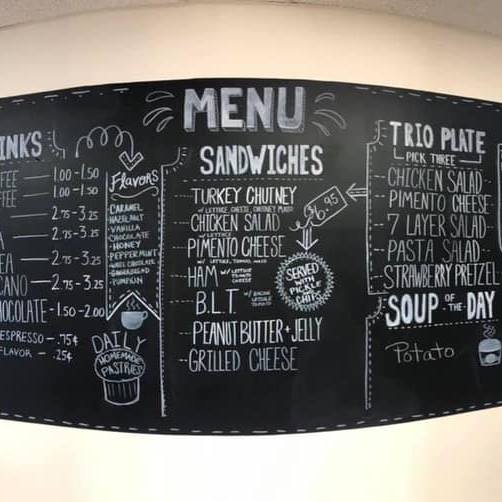 MENU
INKS
FFEE 1.00-1.50
FFEE 1.00-1.50
2.75-3.25
A
2.75-3.25
EA 2.75-3.25
CANO 2.75-3.25
HOCOLATE-1.50-2.00
ESPRESSO-.75¢
FLAVOR-.25¢
Flavors
CARAMEL
HAZELNUT
VANILLA
CHOCOLATE
HONEY
PEPPERMINT
WHITE CHOCOLATE
GINGERBREAD
PUMPKIN
DAILY
HOMEMADE
PASTRIES
SANDWICHES
TURKEY CHUTNEY
W/ LETTUCE, CHEESE, CHUTNEY MAYO
CHICKEN SALAD
W/ LETTUCE
PIMENTO CHEESE
W/ LETTUCE, TOMATO, MAYO
HAM W/ LETTUCE
TOMATO
CHEESE
B.L.T. W/ BACON
LETTUCE
TOMATO
PEANUT BUTTER + JELLY
GRILLED CHEESE
$6.95
SERVED
WITH
PICKLE
CHIPS
TRIO PLATE
PICK THREE
CHICKEN SALAD
PIMENTO CHEESE
7 LAYER SALAD
PASTA SALAD
STRAWBERRY PRETZEL
SOUP OF THE DAY
Potato